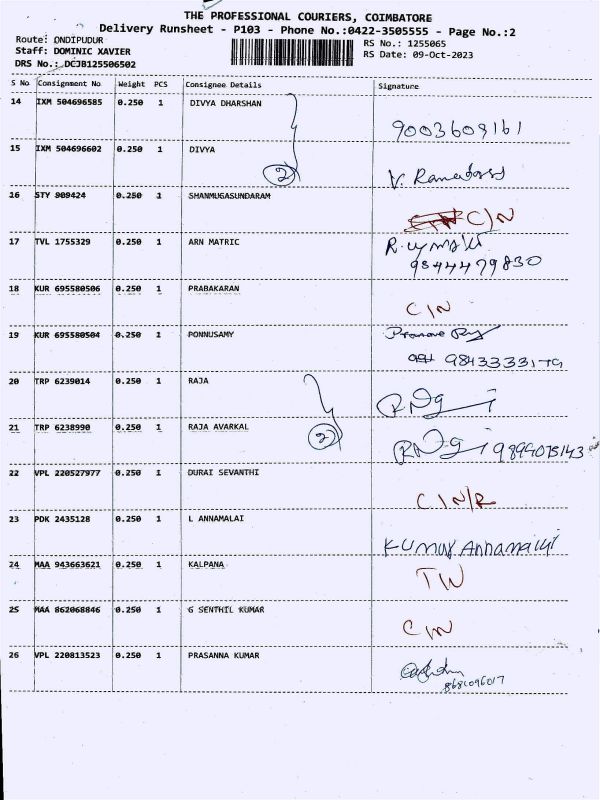 THE PROFESSIONAL COURIERS, COIMBATORE
Delivery Runsheet - P103 - Phone No.:0422-3505555 - Page No.:2
Route: ONDIPUDUR
RS No.: 1255065
Staff: DOMINIC XAVIER
RS Date: 09-Oct-2023
DRS No.: DCJB125506502
S No Consignment No Weight PCS Consignee Details Signature
14 IXM 504696585 0.250 1 DIVYA DHARSHAN
9003609161
15 IXM 504696602 0.250 1 DIVYA
2
V. Ramadoss
16 STY 909424 0.250 1 SHANMUGASUNDARAM
C/N
17 TVL 1755329 0.250 1 ARN MATRIC
9844479830
18 KUR 695580506 0.250 1 PRABAKARAN
C/N
19 KUR 695580504 0.250 1 PONNUSAMY
20 TRP 6239014 0.250 1 RAJA
21 TRP 6238990 0.250 1 RAJA AVARKAL
2
22 VPL 220527977 0.250 1 DURAI SEVANTHI
C/N/R
23 PDK 2435128 0.250 1 L ANNAMALAI
24 MAA 943663621 0.250 1 KALPANA
25 MAA 862068846 0.250 1 G SENTHIL KUMAR
26 VPL 220813523 0.250 1 PRASANNA KUMAR
8681096017